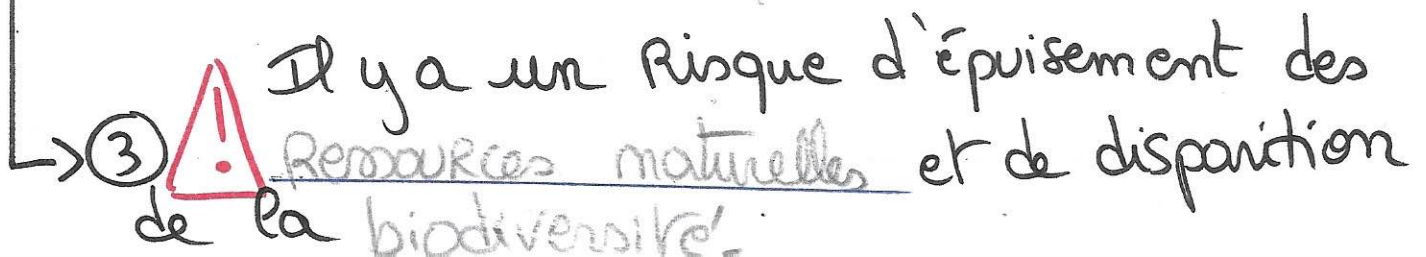 Il y a un Risque d'épuisement des
→ ③ ! Ressources naturelles et de disparition
de la biodiversité.